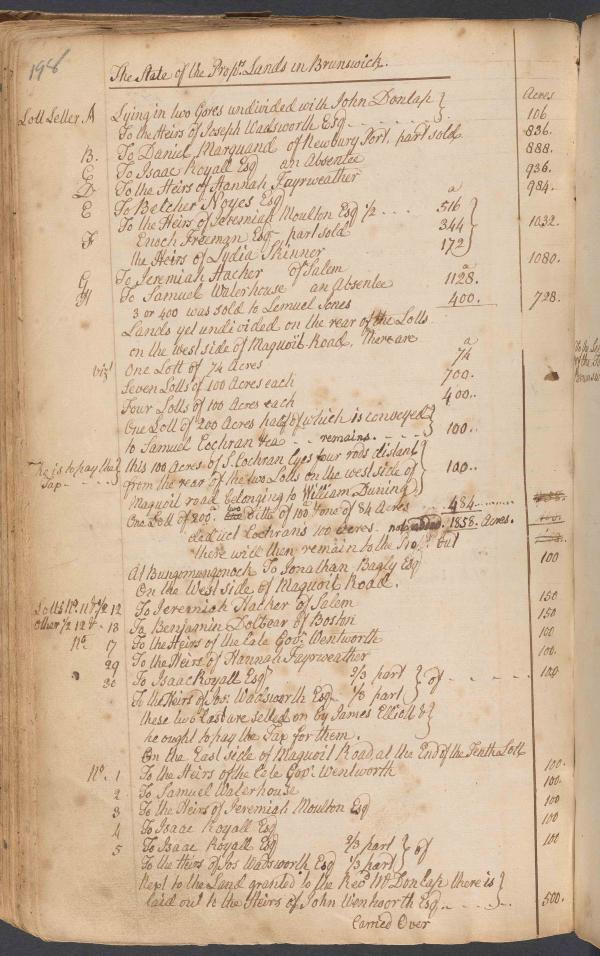 198
The State of the Prop.rs Lands in Brunswick.
Acres
Lott Letter A Lying in two Gores undivided with John Dunlap
To the Heirs of Joseph Wadsworth Esq 106
B. To Daniel Marquand of Newbury Port, part sold 836.
C To Isaac Royall Esq an Absentee 888.
D To the Heirs of Hannah Fayrweather 936.
E To Belcher Noyes Esq 984.
To the Heirs of Jeremiah Moulton Esq 1/2 516
F Enoch Freeman Esq part sold 344 1032.
the Heirs of Lydia Skinner 172
G To Jeremiah Hacker of Salem 1080.
H To Samuel Waterhouse an Absentee 1128.
3 or 400 was sold to Lemuel Jones 400. 728.
Lands yet undivided on the rear of the Lotts
on the west side of Maquoit Road, There are
viz.t One Lott of 74 Acres 74
Seven Lotts of 100 Acres each 700.
Four Lotts of 100 Acres each 400.
One Lott of 200 Acres half of which is conveyed
to Samuel Cochran &ca remains. 100.
The is to pay the this 100 Acres of S. Cochran lyes four rods distant
Tax from the rear of the two Lotts on the west side of 100.
Maquoit road belonging to William Duning
One Lott of 200. two ditto of 100, one of 84 Acres 484
deduct Cochrans 100 Acres. 1858. Acres.
there will then remain to the Pro.rs but
At Bungomungonock To Jonathan Bagly Esq 100
On the West side of Maquoit Road.
Lotts No. 11 & 1/2 12 To Jeremiah Hacker of Salem 150
Other 1/2 12 & 13 To Benjamin Dolbear of Boston 150
No. 17 To the Heirs of the late Gov.r Wentworth 100
29 To the Heirs of Hannah Fayrweather 100.
30 To Isaac Royall Esq 2/3 part of 100
To the Heirs of Jos: Wadsworth Esq 1/3 part
these two Last are setled on by James Elliott &
he ought to pay the Tax for them.
On the East side of Maquoit Road, at the End of the Tenth Lott
No. 1 To the Heirs of the late Gov.r Wentworth 100.
2 To Samuel Waterhouse 100.
3 To the Heirs of Jeremiah Moulton Esq 100
4 To Isaac Royall Esq 100
5 To Isaac Royall Esq 2/3 part of 100
To the Heirs of Jos Wadsworth Esq 1/3 part
Next to the Land granted to the Rev.d Mr Dunlap there is
laid out to the Heirs of John Wentworth Esq 500.
Carried Over